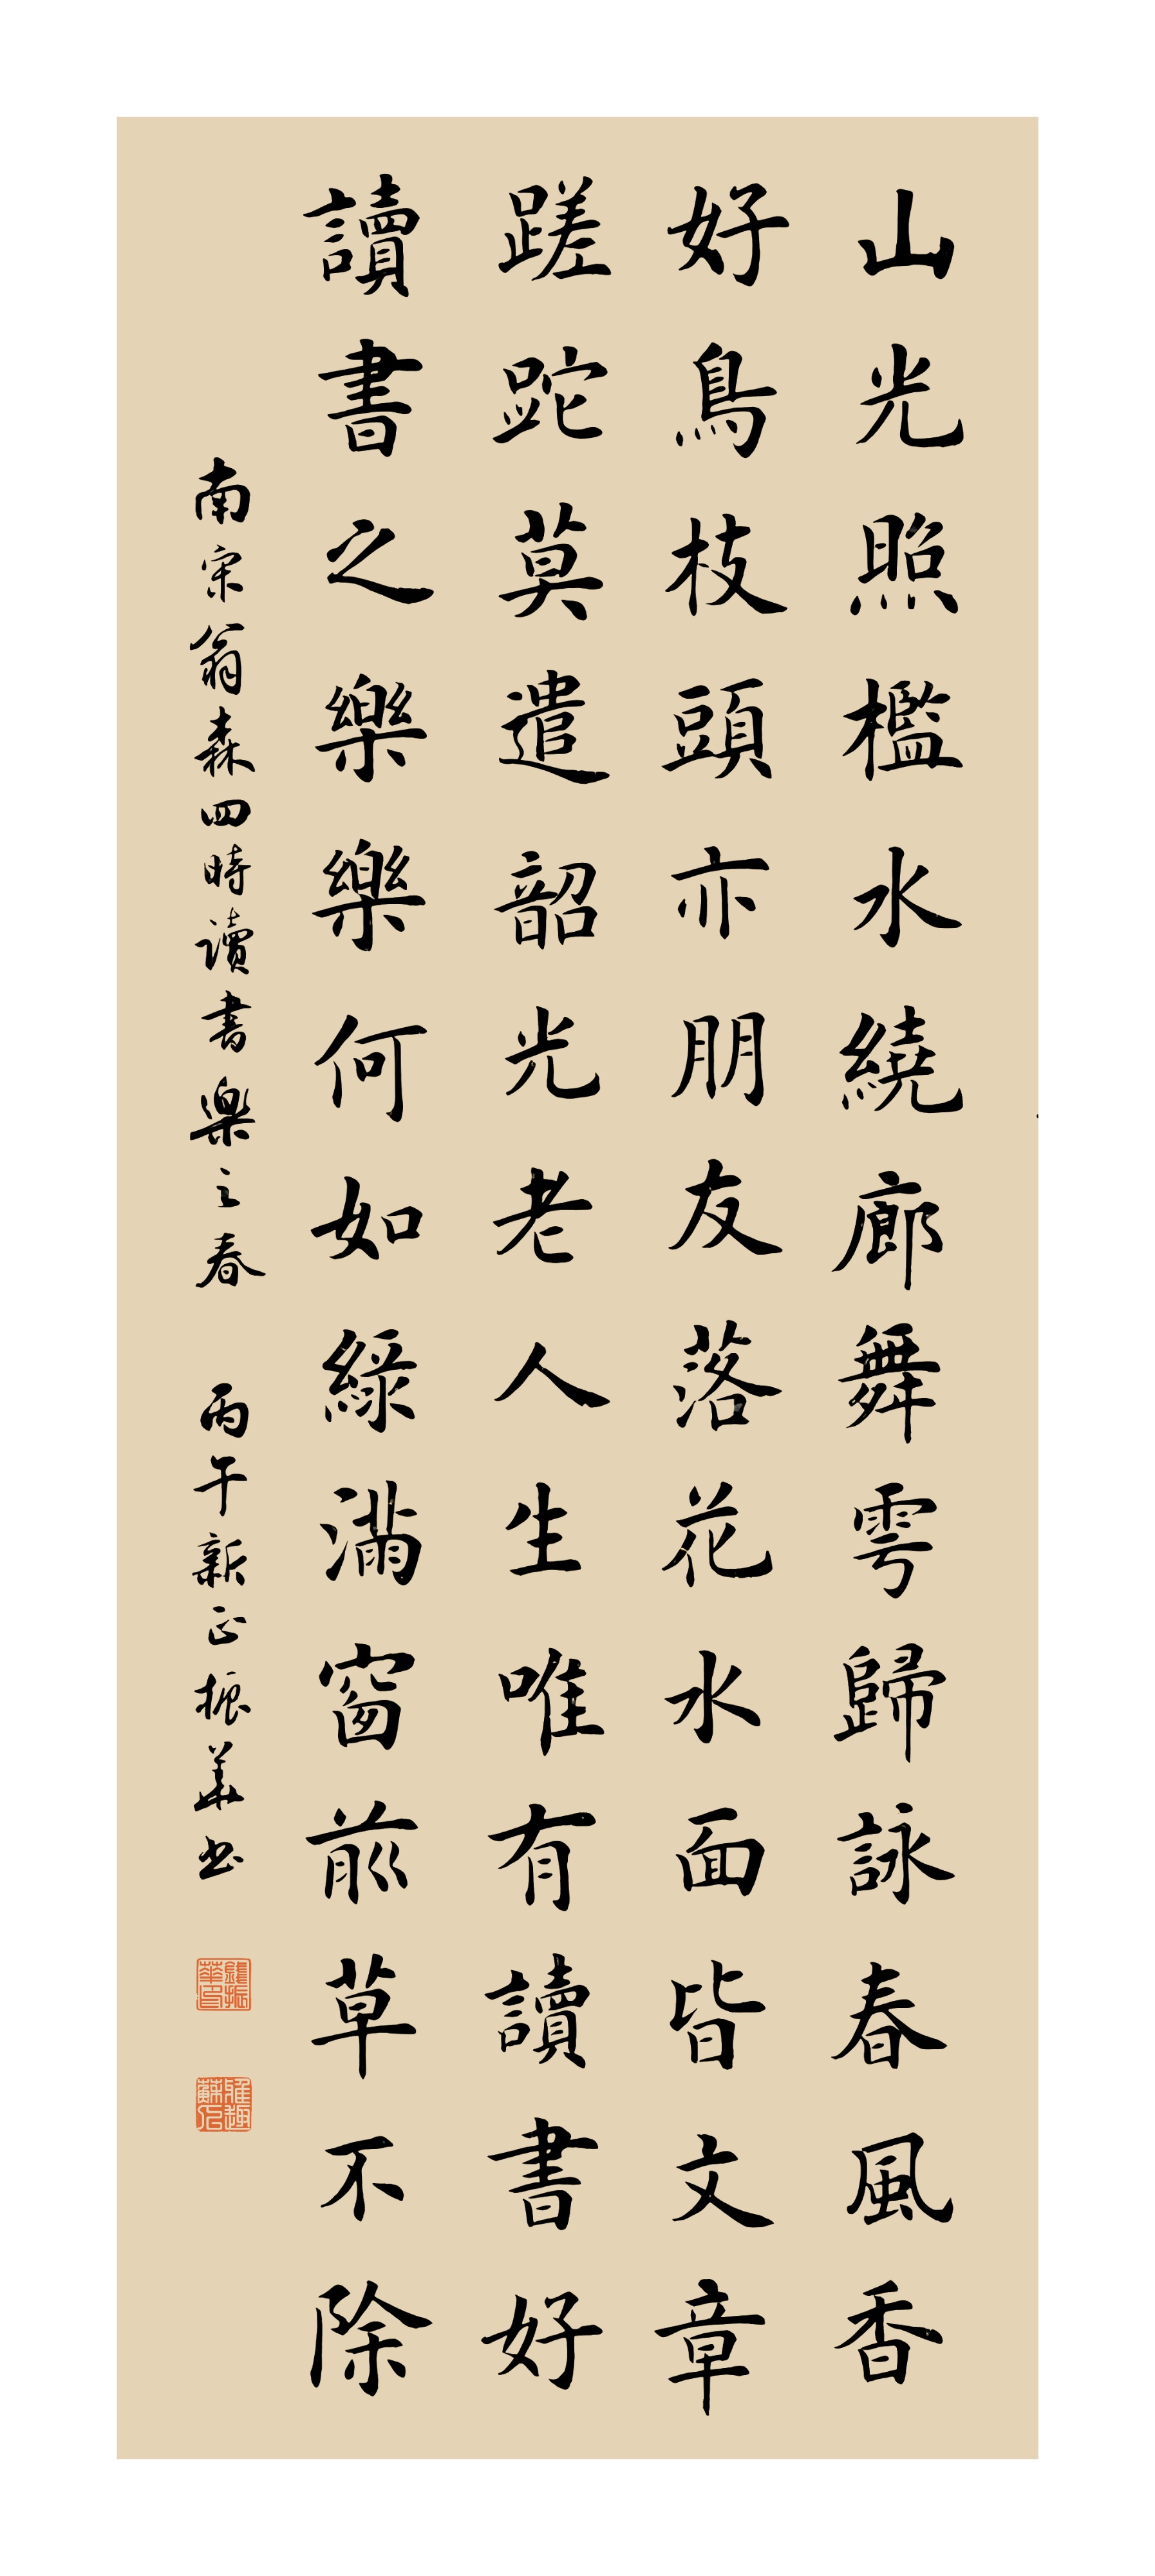 山光照檻水繞廊舞雩歸詠春風香
好鳥枝頭亦朋友落花水面皆文章
蹉跎莫遣韶光老人生唯有讀書好
讀書之樂樂何如綠滿窗前草不除
南宋翁森四時讀書樂之春 丙午新正振華书